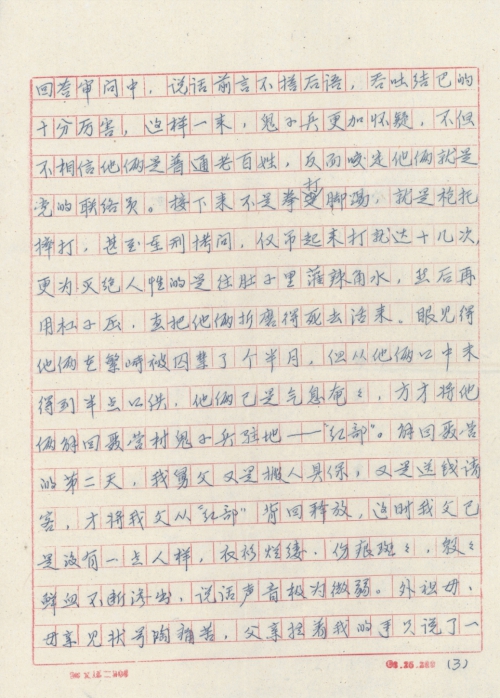 回答审问中，说话前言不搭后语，吞吐结巴的
十分厉害，这样一来，鬼子兵更加怀疑，不但
不相信他俩是普通老百姓，反而咬定他俩就是
党的联络员。接下来不是拳打脚踢，就是枪托
捧打，甚至重刑拷问，仅吊起来打就达十几次，
更为灭绝人性的是往肚子里灌辣角水，然后再
用杠子压，直把他俩折磨得死去活来。眼见得
他俩在繁峙被囚禁了个半月，但从他俩口中未
得到半点口供，他俩已是气息奄々，方才将他
俩解回聂营村鬼子兵驻地——“红部”。解回聂营
的第二天，我舅父又是搬人具保，又是送钱请
客，才将我父从“红部”背回释放，这时我父已
是没有一点人样，衣衫烂缕，伤痕斑々，殷々
鲜血不断渗出，说话声音极为微弱。外祖母、
母亲见状号陶痛苦，父亲拉着我的手只说了一
(3)